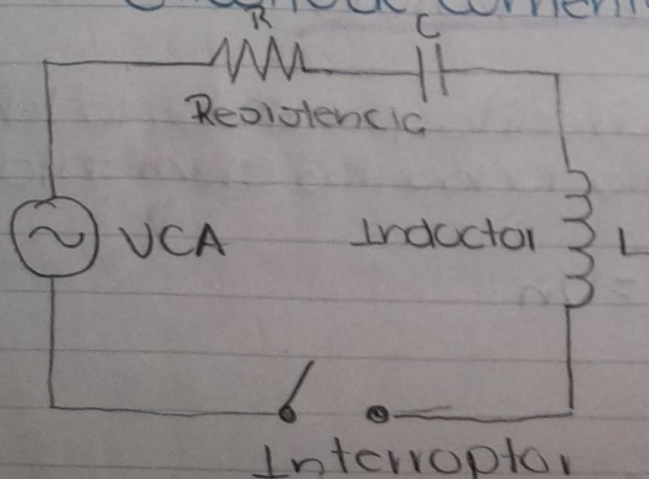 R
C
Resistencia
VCA
Inductor
L
Interruptor